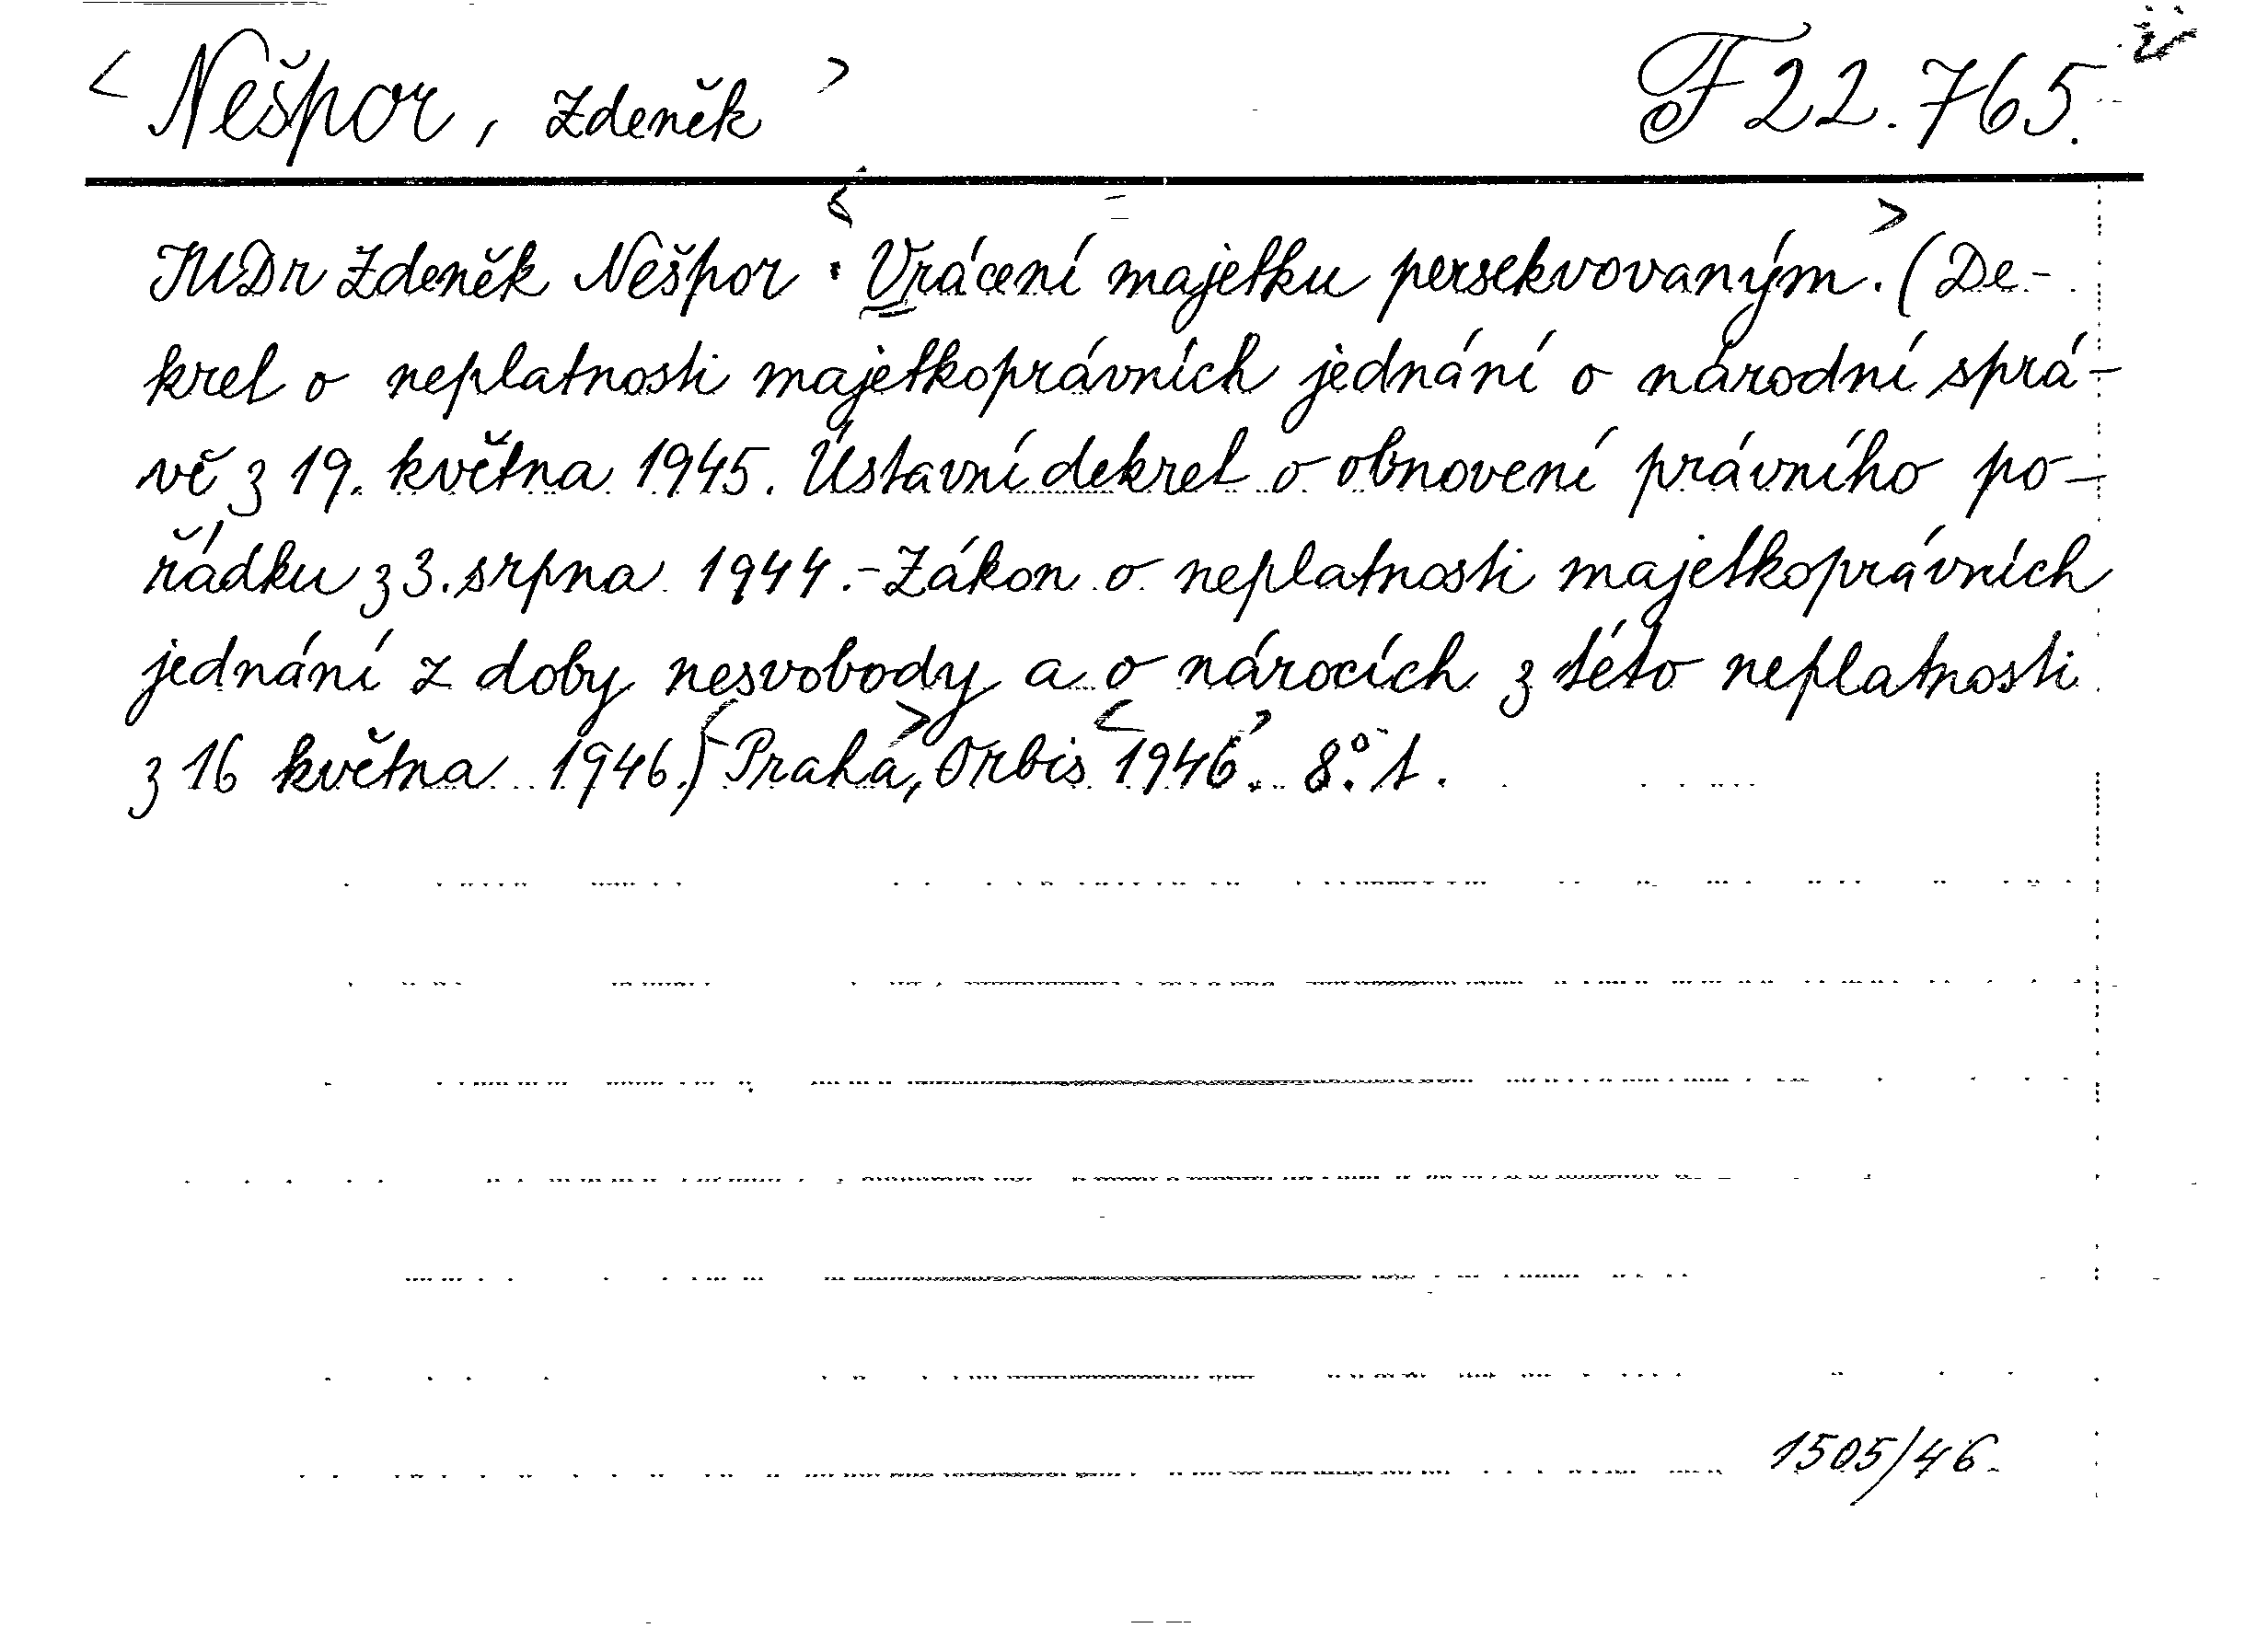 < Nešpor, Zdeněk > F 22.765.
JUDr Zdeněk Nešpor : < Vrácení majetku persekvovaným. > (De-
kret o neplatnosti majetkoprávních jednání o národní sprá-
vě z 19. května 1945. Ústavní dekret o obnovení právního po-
řádku z 3. srpna 1944. - Zákon o neplatnosti majetkoprávních
jednání z doby nesvobody a o nárocích z této neplatnosti
z 16 května 1946.) < Praha >, Orbis < 1946 >. 8.° 1.
1505/46.